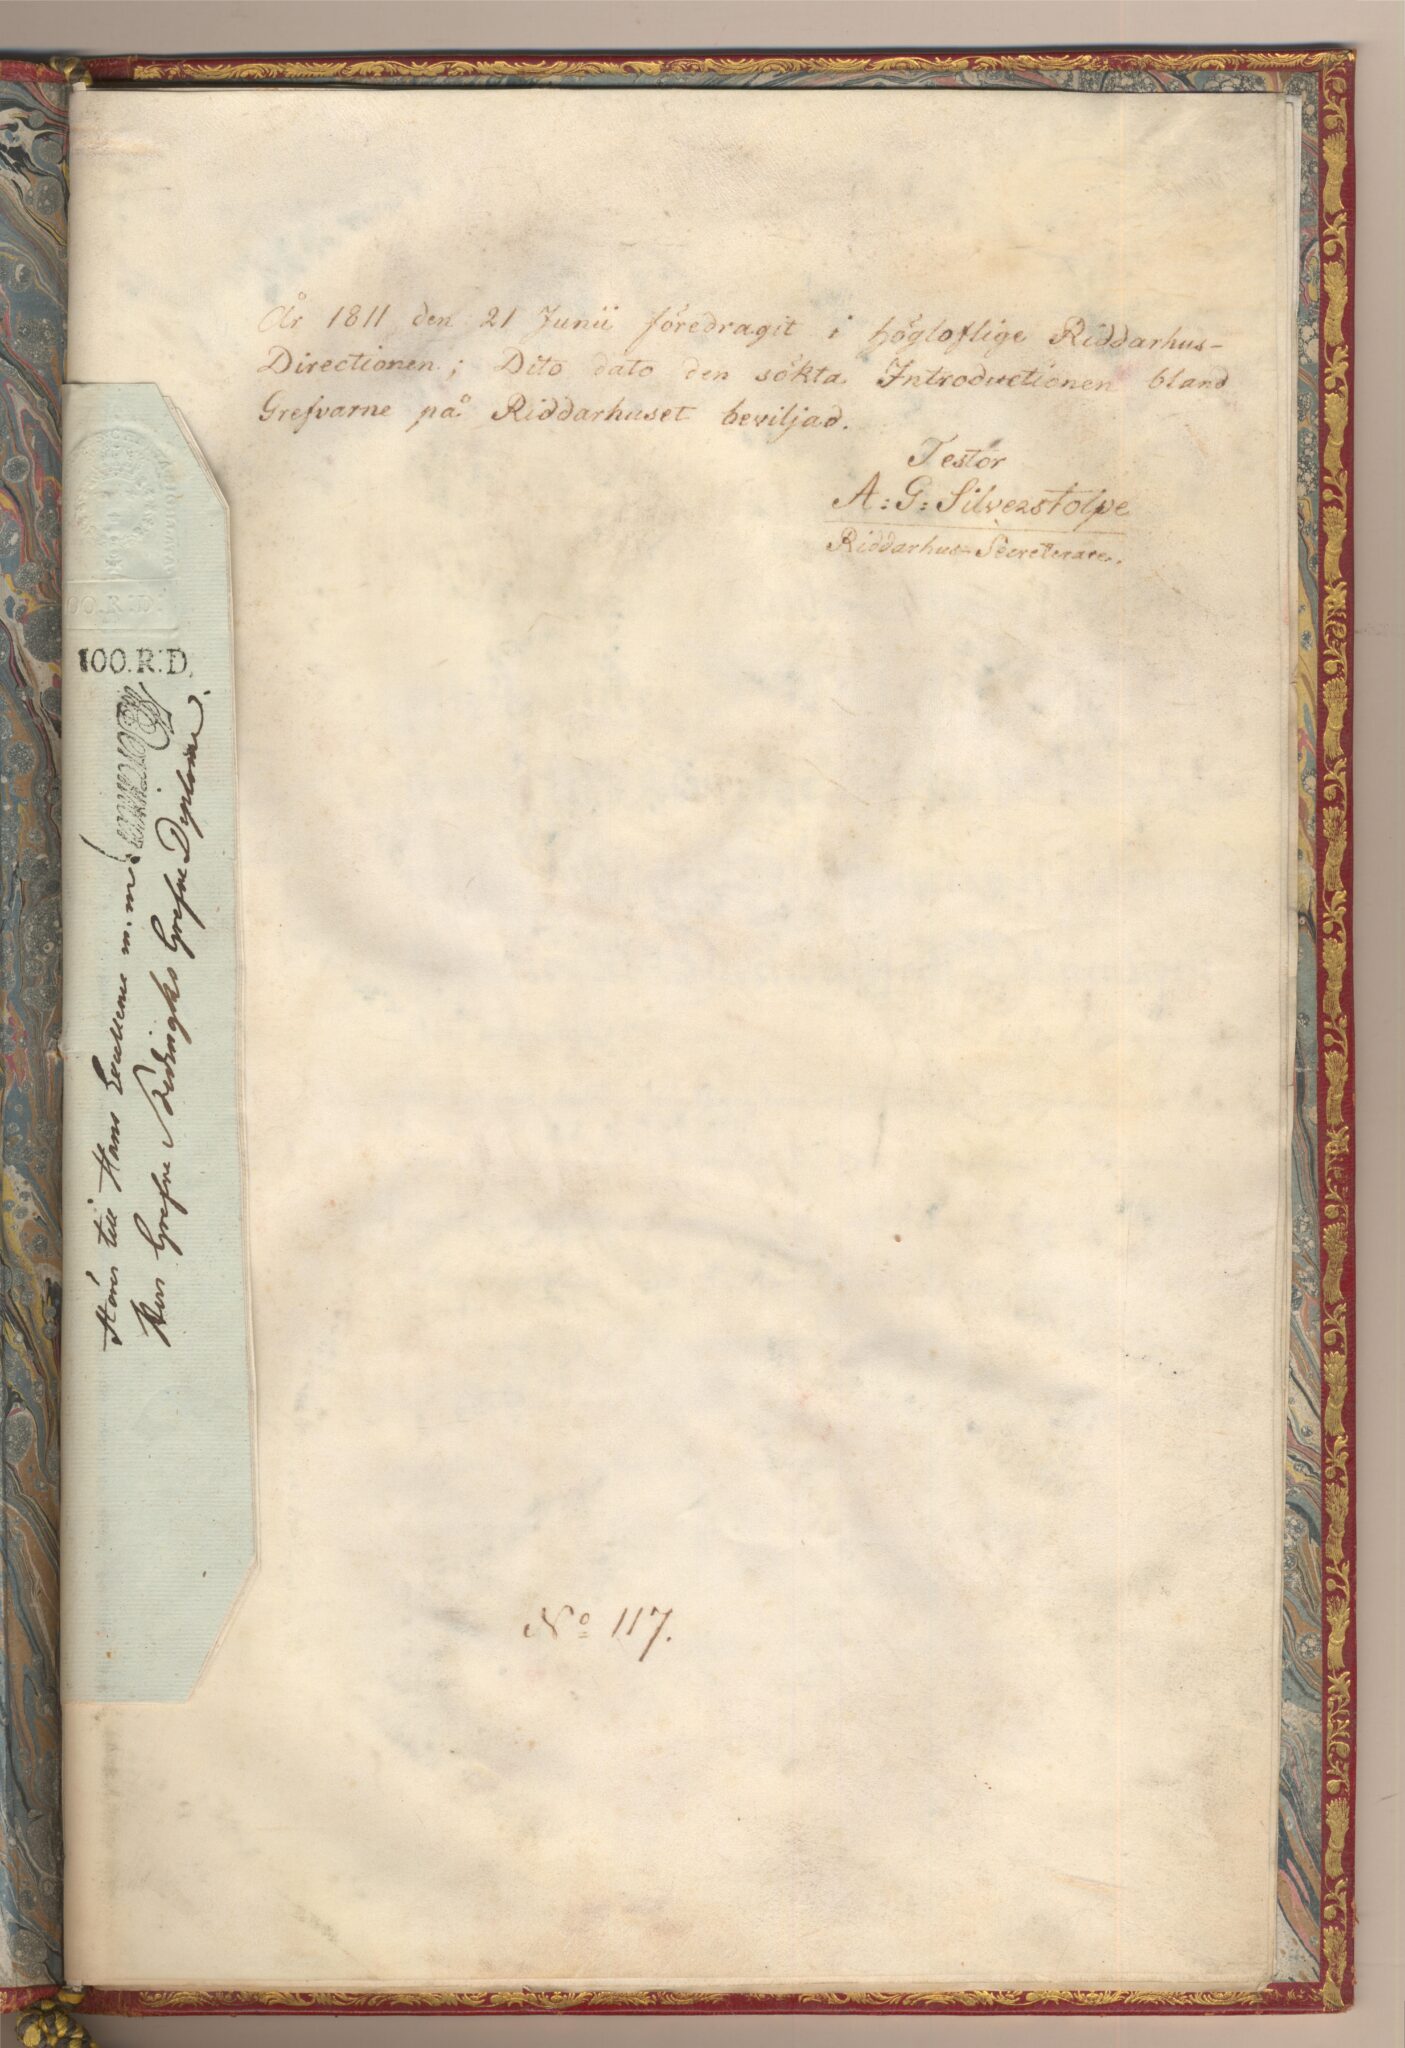 År 1811 den 21 Junii föredragit i högloflige Riddarhus-
Directionen; Dito dato den sökta Introductionen bland
Grefvarne på Riddarhuset beviljad.
Testor
A: G: Silverstolpe
Riddarhus-Secreterare.
OO.R:D:
100.R:D.
Hörer till Hans Excellence m.m.
Herr Grefve Stedingks Grefve Diplome.
No 117.